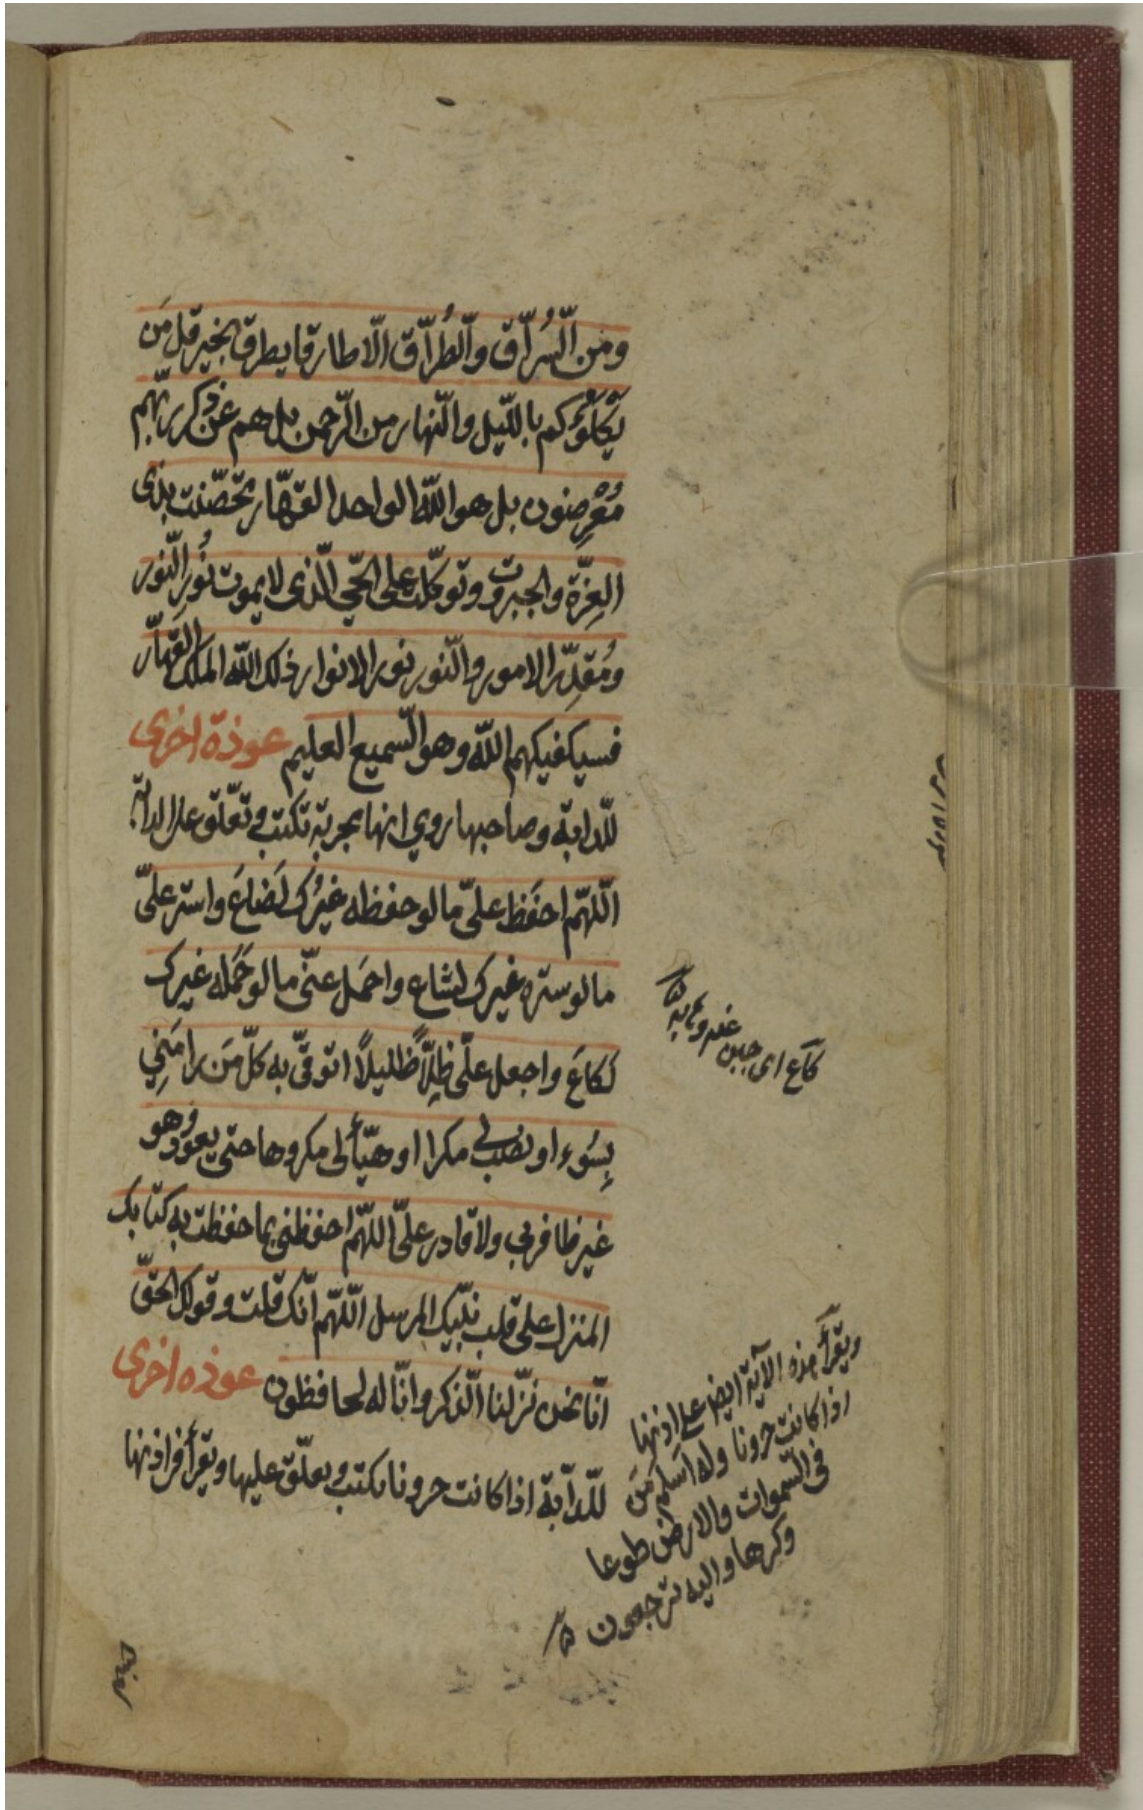 ومن السُراق والطُراق الا طارقا يطرق بخير قل مَن
يَكْلَؤُكم بالليل والنهار من الرحمن بل هم عن ذكر ربهم
مُعْرِضون بل هو الله الواحد القهّار تحصّنت بذى
العِزّة والجبروت وتوكّلت على الحّي الّذى لا يموت نُور النّور
ومُقدِّر الامور والنّور نور الانوار ذلك الله الملك القهّار
فسيكفيكهم الله وهو السّميع العليم عوذة اخرى
للدابة وصاحبها روي انها مجربة تكتب وتعلّق على الدابة
اللّهمّ احفَظ علىّ ما لو حفظه غيرُك لَضاعَ واستر علىّ
ما لو ستره غيرك لشاع واحمَل عنّى ما لو حَمَله غيرك
لكاعَ واجعل علىّ ظِلّاً ظليلاً اتوقّى به كلّ مَن رامَنِي
بِسُوء او نصب لى مكرا او هيّأ لى مكروها حتى يعود وهو
غير ظافر بى ولا قادر علىّ اللّهمّ احفظنى بما حفظت به كتابك
المنزل على قلب نبّيك المرسل اللّهمّ انّك قلت وقولك الحقّ
انّا نحن نزّلنا الذّكر وانّا له لحافظون عوذه اخرى
للدّابّة اذا كانت حرونا تكتب ويعلّق عليها ويقرأ فى اذنها
كاع اى جبن
ويقرأ هذه الآية ايضا على اذنها
اذا كانت حرونا وله اسلم مَن
فى السّموات والارض طوعا
وكرها واليه ترجعون